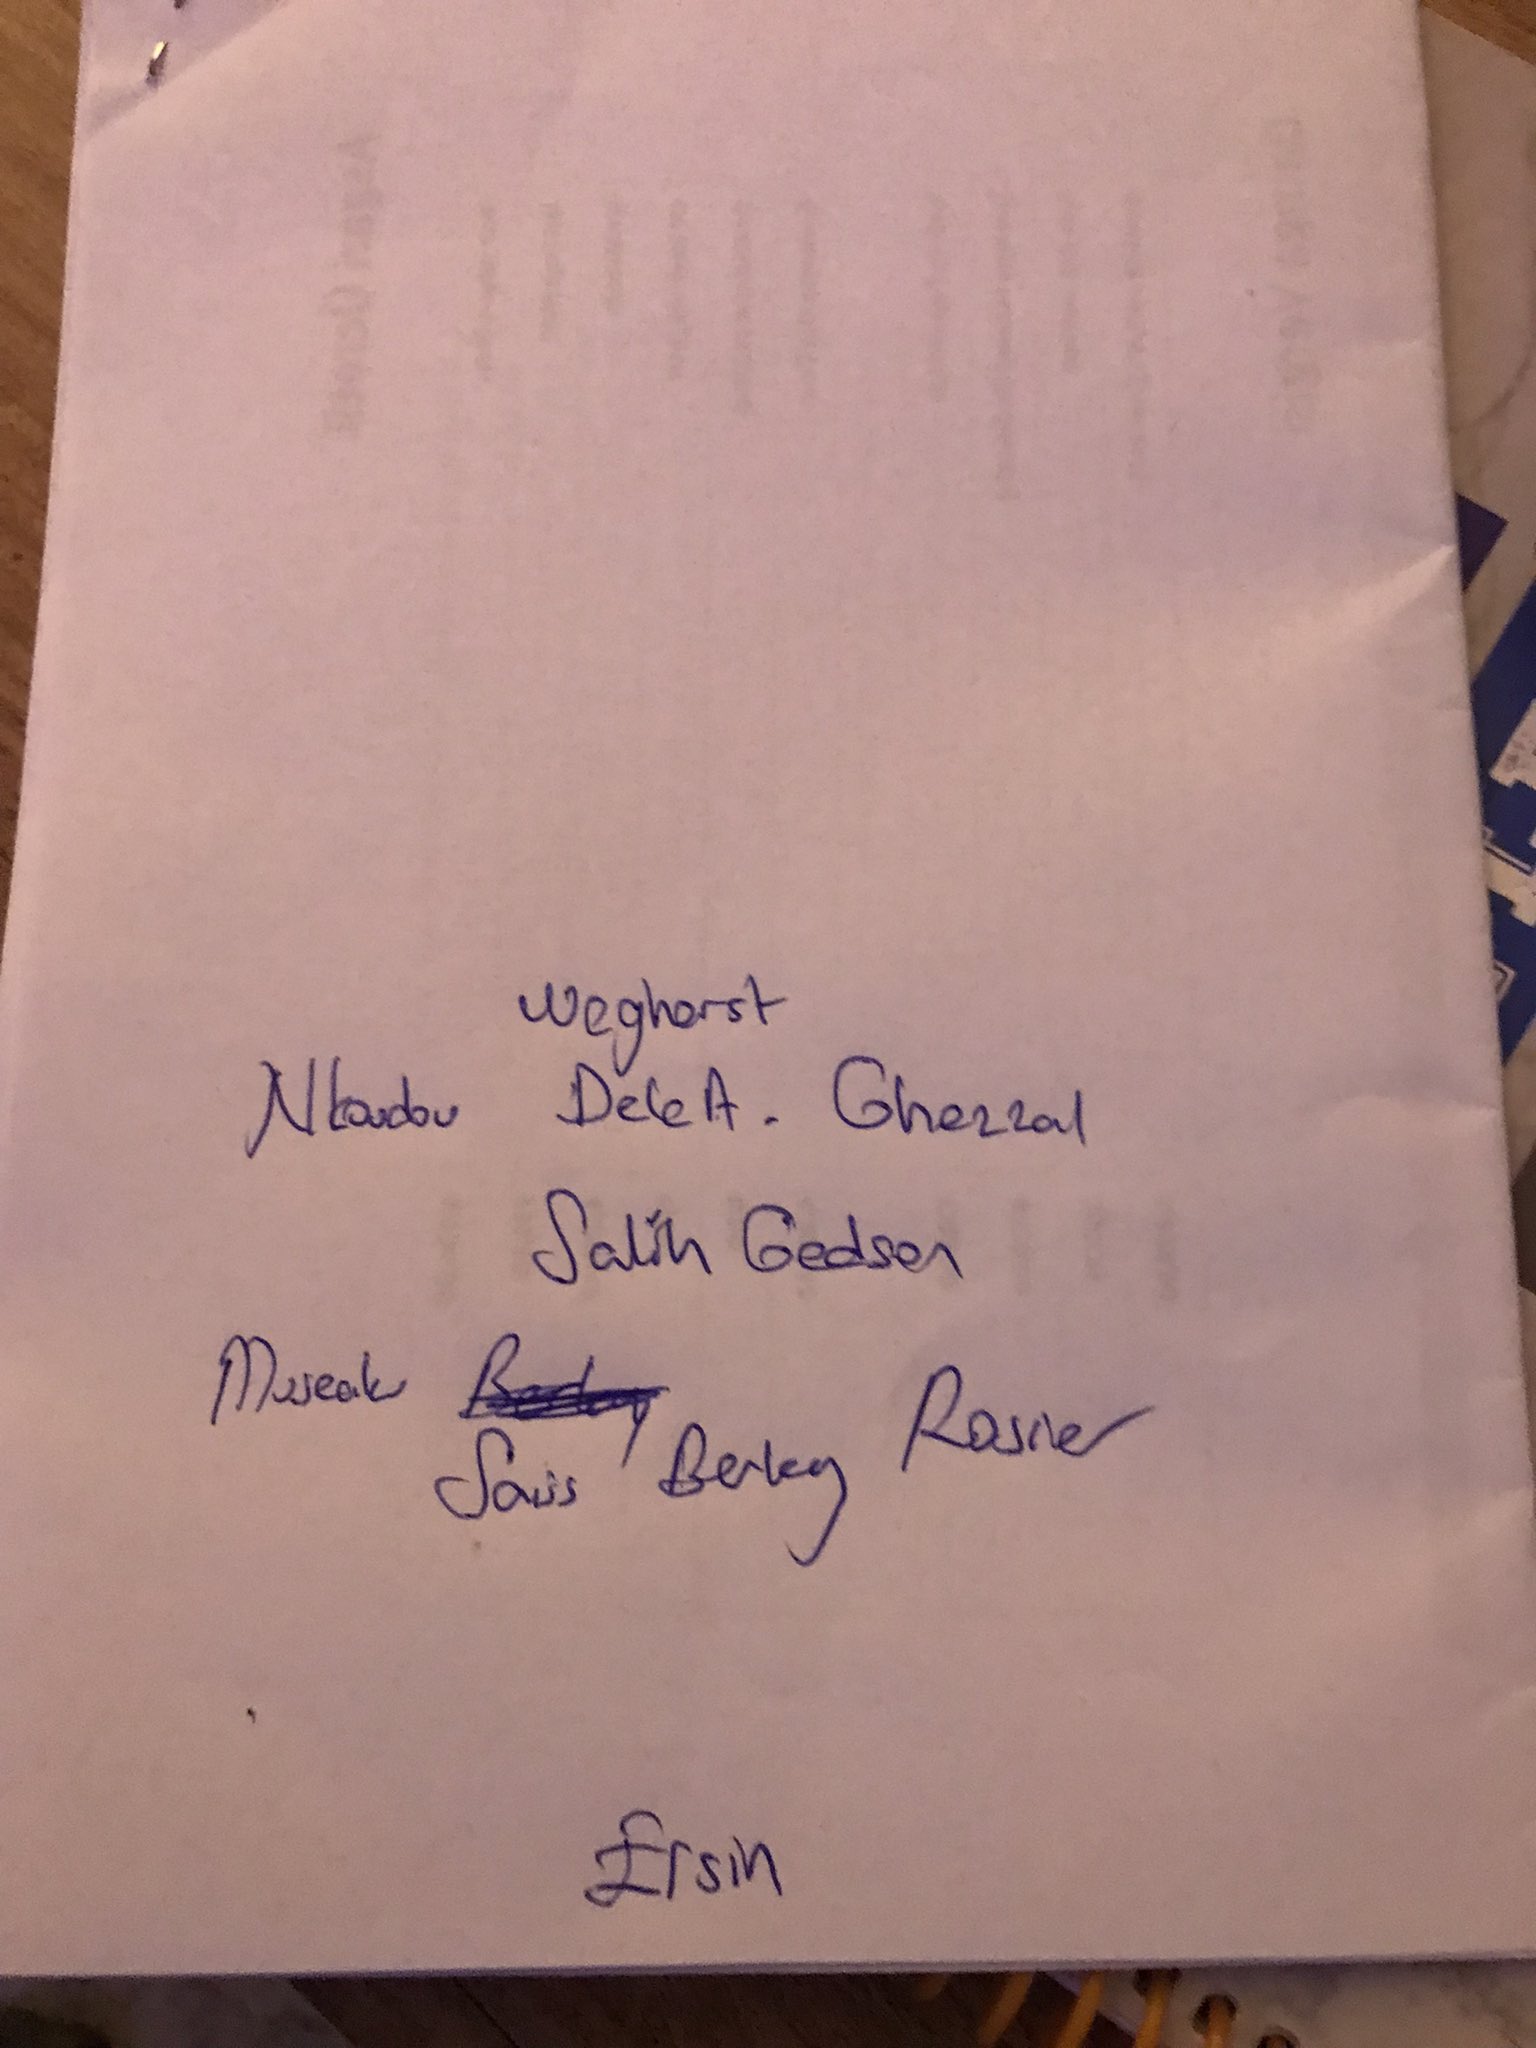 Weghorst
Nkoudou Dele A. Ghezzal
Salih Gedson
Museaku Rosier
Saiss Berkay
Ersin